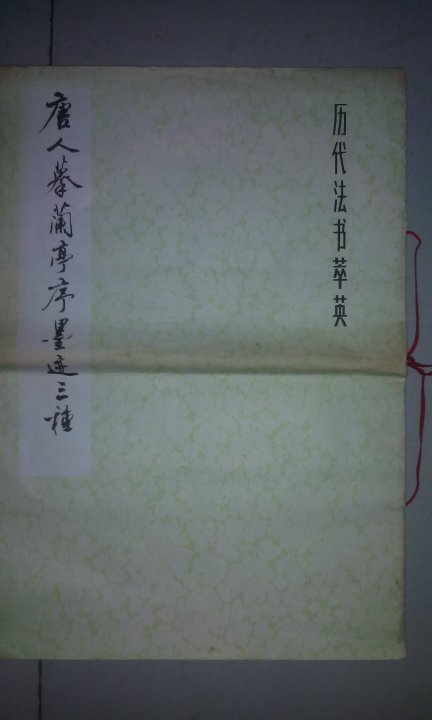 历代法书萃英
唐人摹蘭亭序墨迹三種